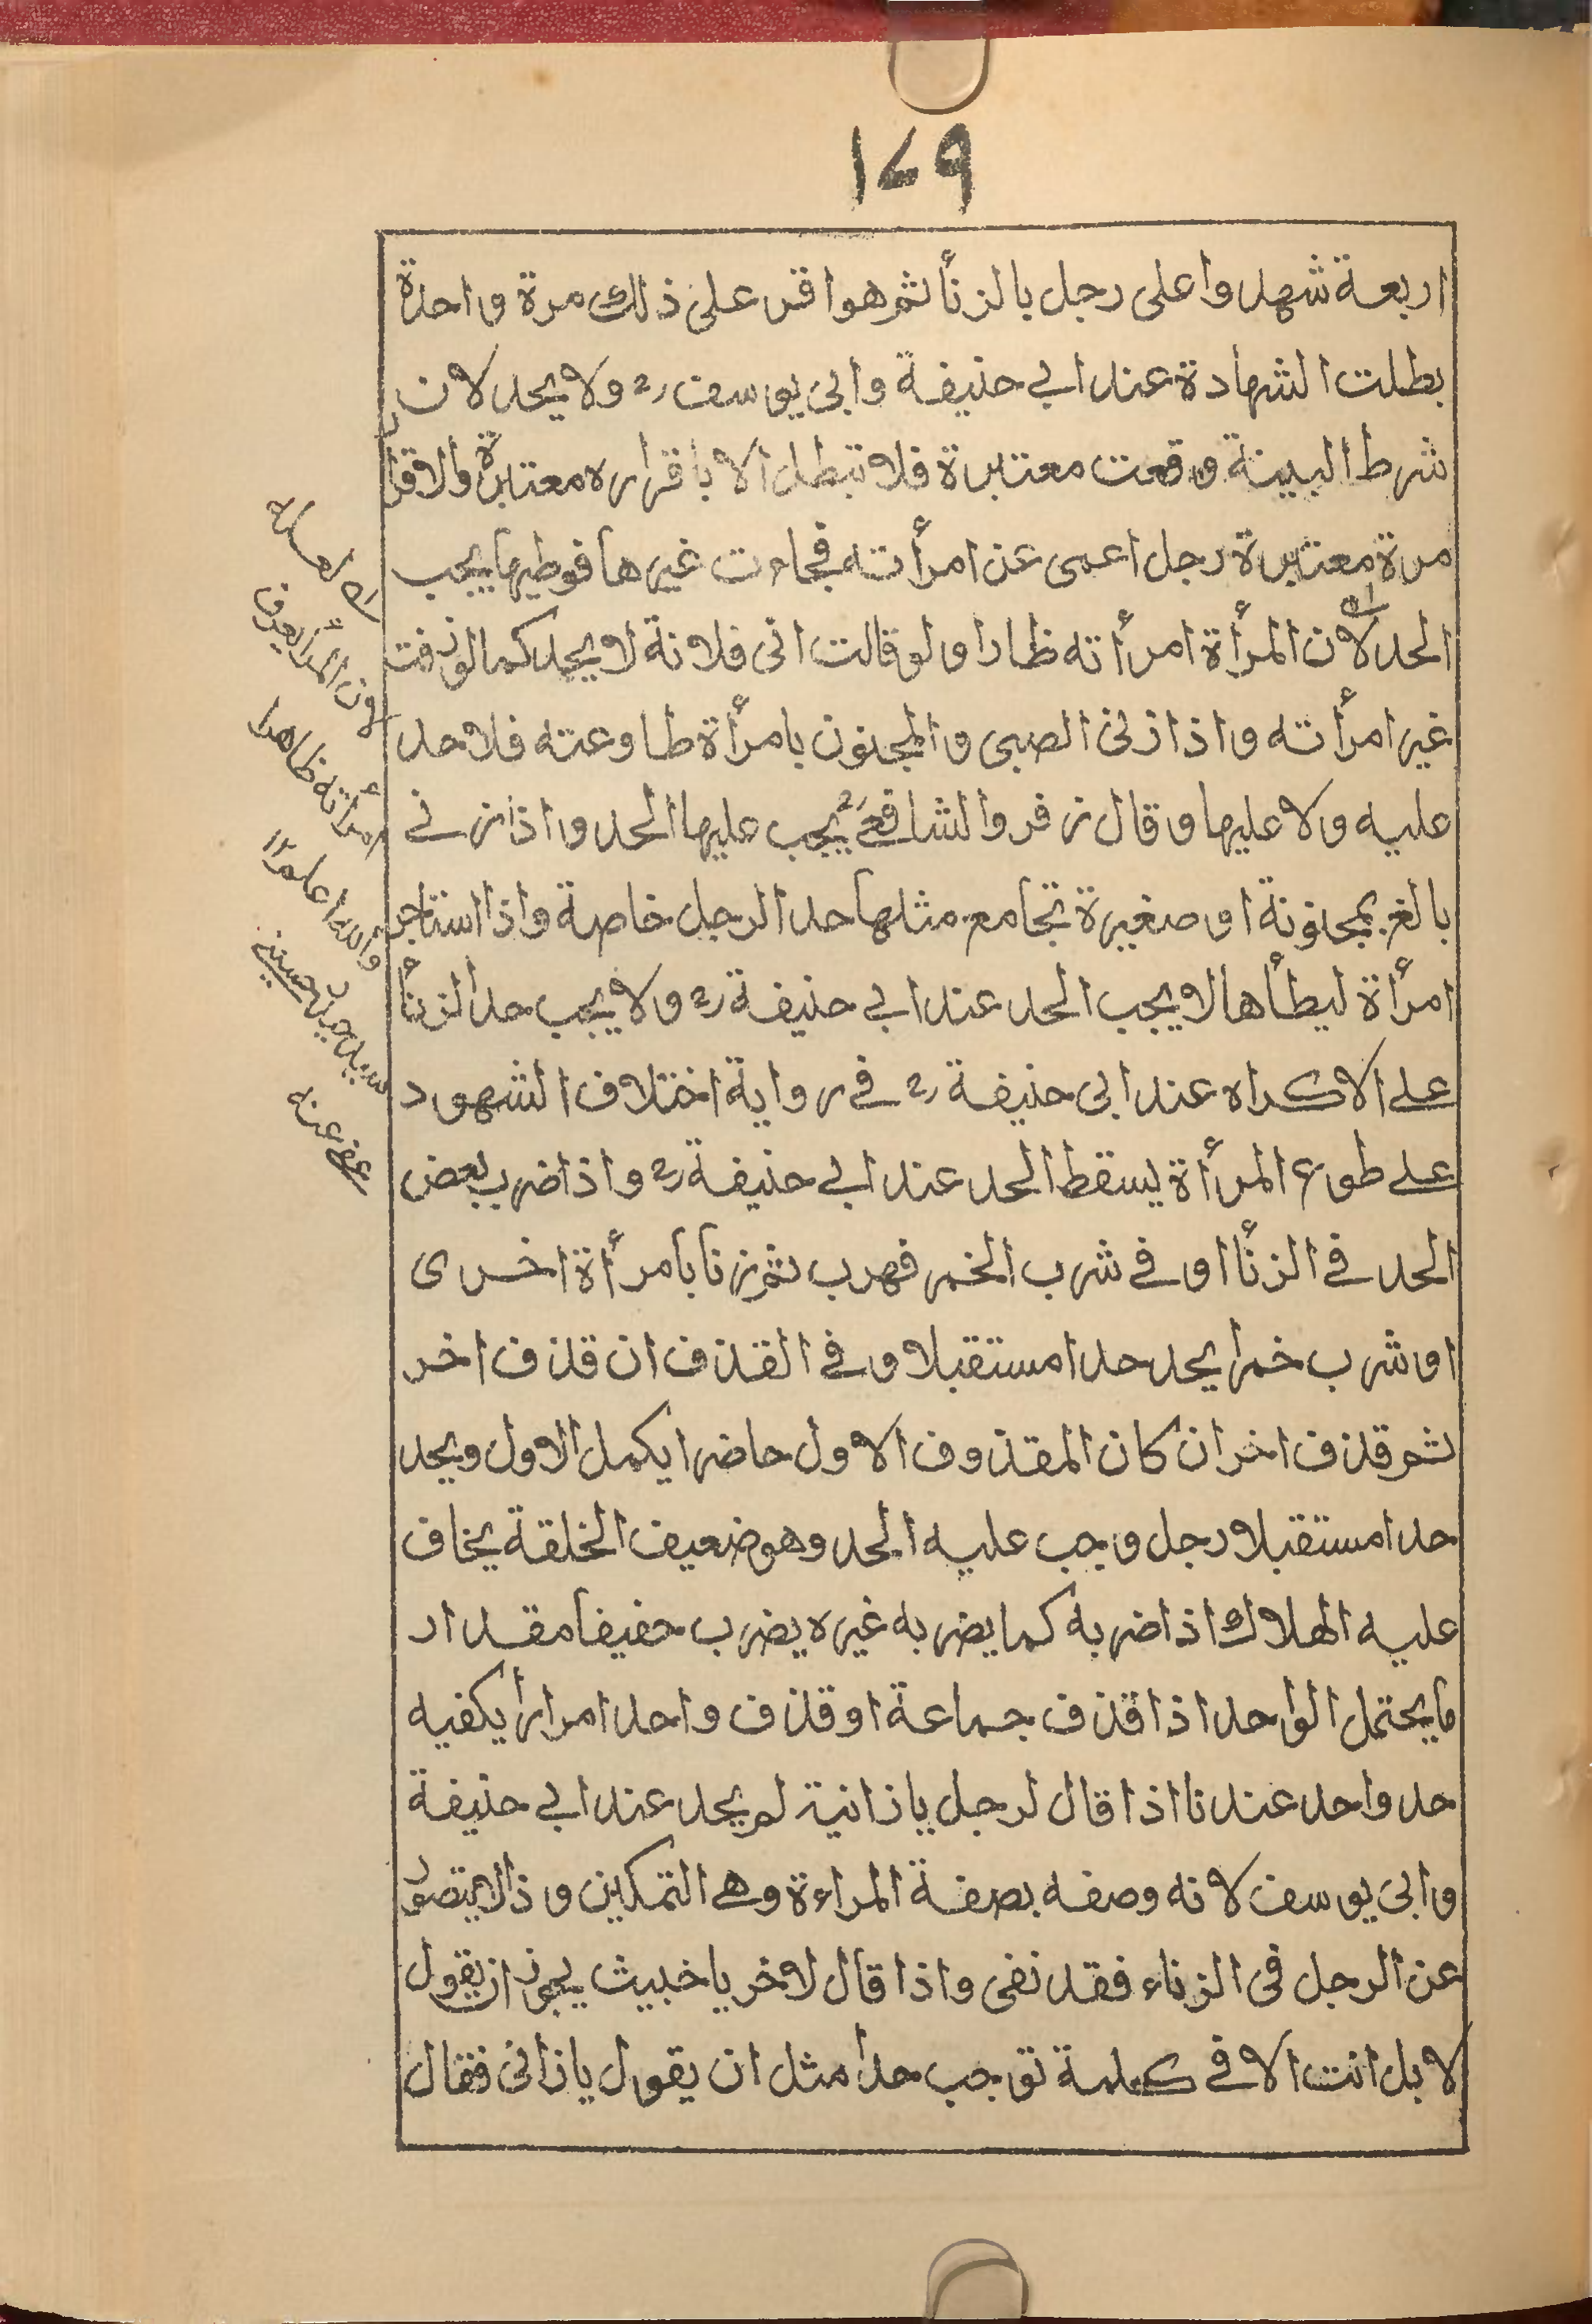 ١٧٩
اربعة شهدوا على رجل بالزنأ ثم هو اقر على ذلك مرة واحدة
بطلت الشهادة عند ابي حنيفة وابى يوسف رح ولا يحد لان
شرط البينة وقعت معتبرة فلا تبطل الا باقراره معتبرة والاقرار
مرة معتبرة رجل اعمى عن امرأته فجاءت غيرها فوطيها يجب
الحد لان المرأة امرأته ظارا ولو قالت انى فلانة لا يحد كما لو زفت
غير امرأته واذا زنى الصبى والمجنون بامرأة طاوعته فلا حد
عليه ولا عليها وقال زفر والشافعي رح يجب عليها الحد واذا زنى
بالغ بمجنونة او صغيرة تجامع مثلها حد الرجل خاصة واذا استاجر
امرأة ليطأها لا يجب الحد عند ابي حنيفة رح ولا يجب حد الزنأ
على الاكراه عند ابى حنيفة رح فى رواية اختلاف الشهود
على طوع المرأة يسقط الحد عند ابي حنيفة رح واذا ضرب بعض
الحد فى الزنأ او فى شرب الخمر فهرب ثم زنا بامرأة اخرى
او شرب خمرا يحد حدا مستقبلا وفى القذف ان قذف اخر
ثم قذف اخر ان كان المقذوف الاول حاضرا يكمل الاول ويحد
حدا مستقبلا رجل وجب عليه الحد وهو ضعيف الخلقة يخاف
عليه الهلاك اذا ضربه كما يضربه غيره يضرب خفيفا مقدار
ما يحتمل الواحد اذا قذف جماعة او قذف واحدا مرارا يكفيه
حد واحد عندنا اذا قال لرجل يا زانية لم يحد عند ابي حنيفة
وابى يوسف لانه وصفه بصفة المراءة وهى التمكين وذا لا يتصور
عن الرجل فى الزناء فقد نفى واذا قال لاخر يا خبيث يجوز ان يقول
لا بل انت الا فى كلمة توجب حدا مثل ان يقول يا زانى فقال
لان المرأ يعرف
امرأته ظاهرا
والله اعلم ١٢
سيد حسينى
عفى عنه